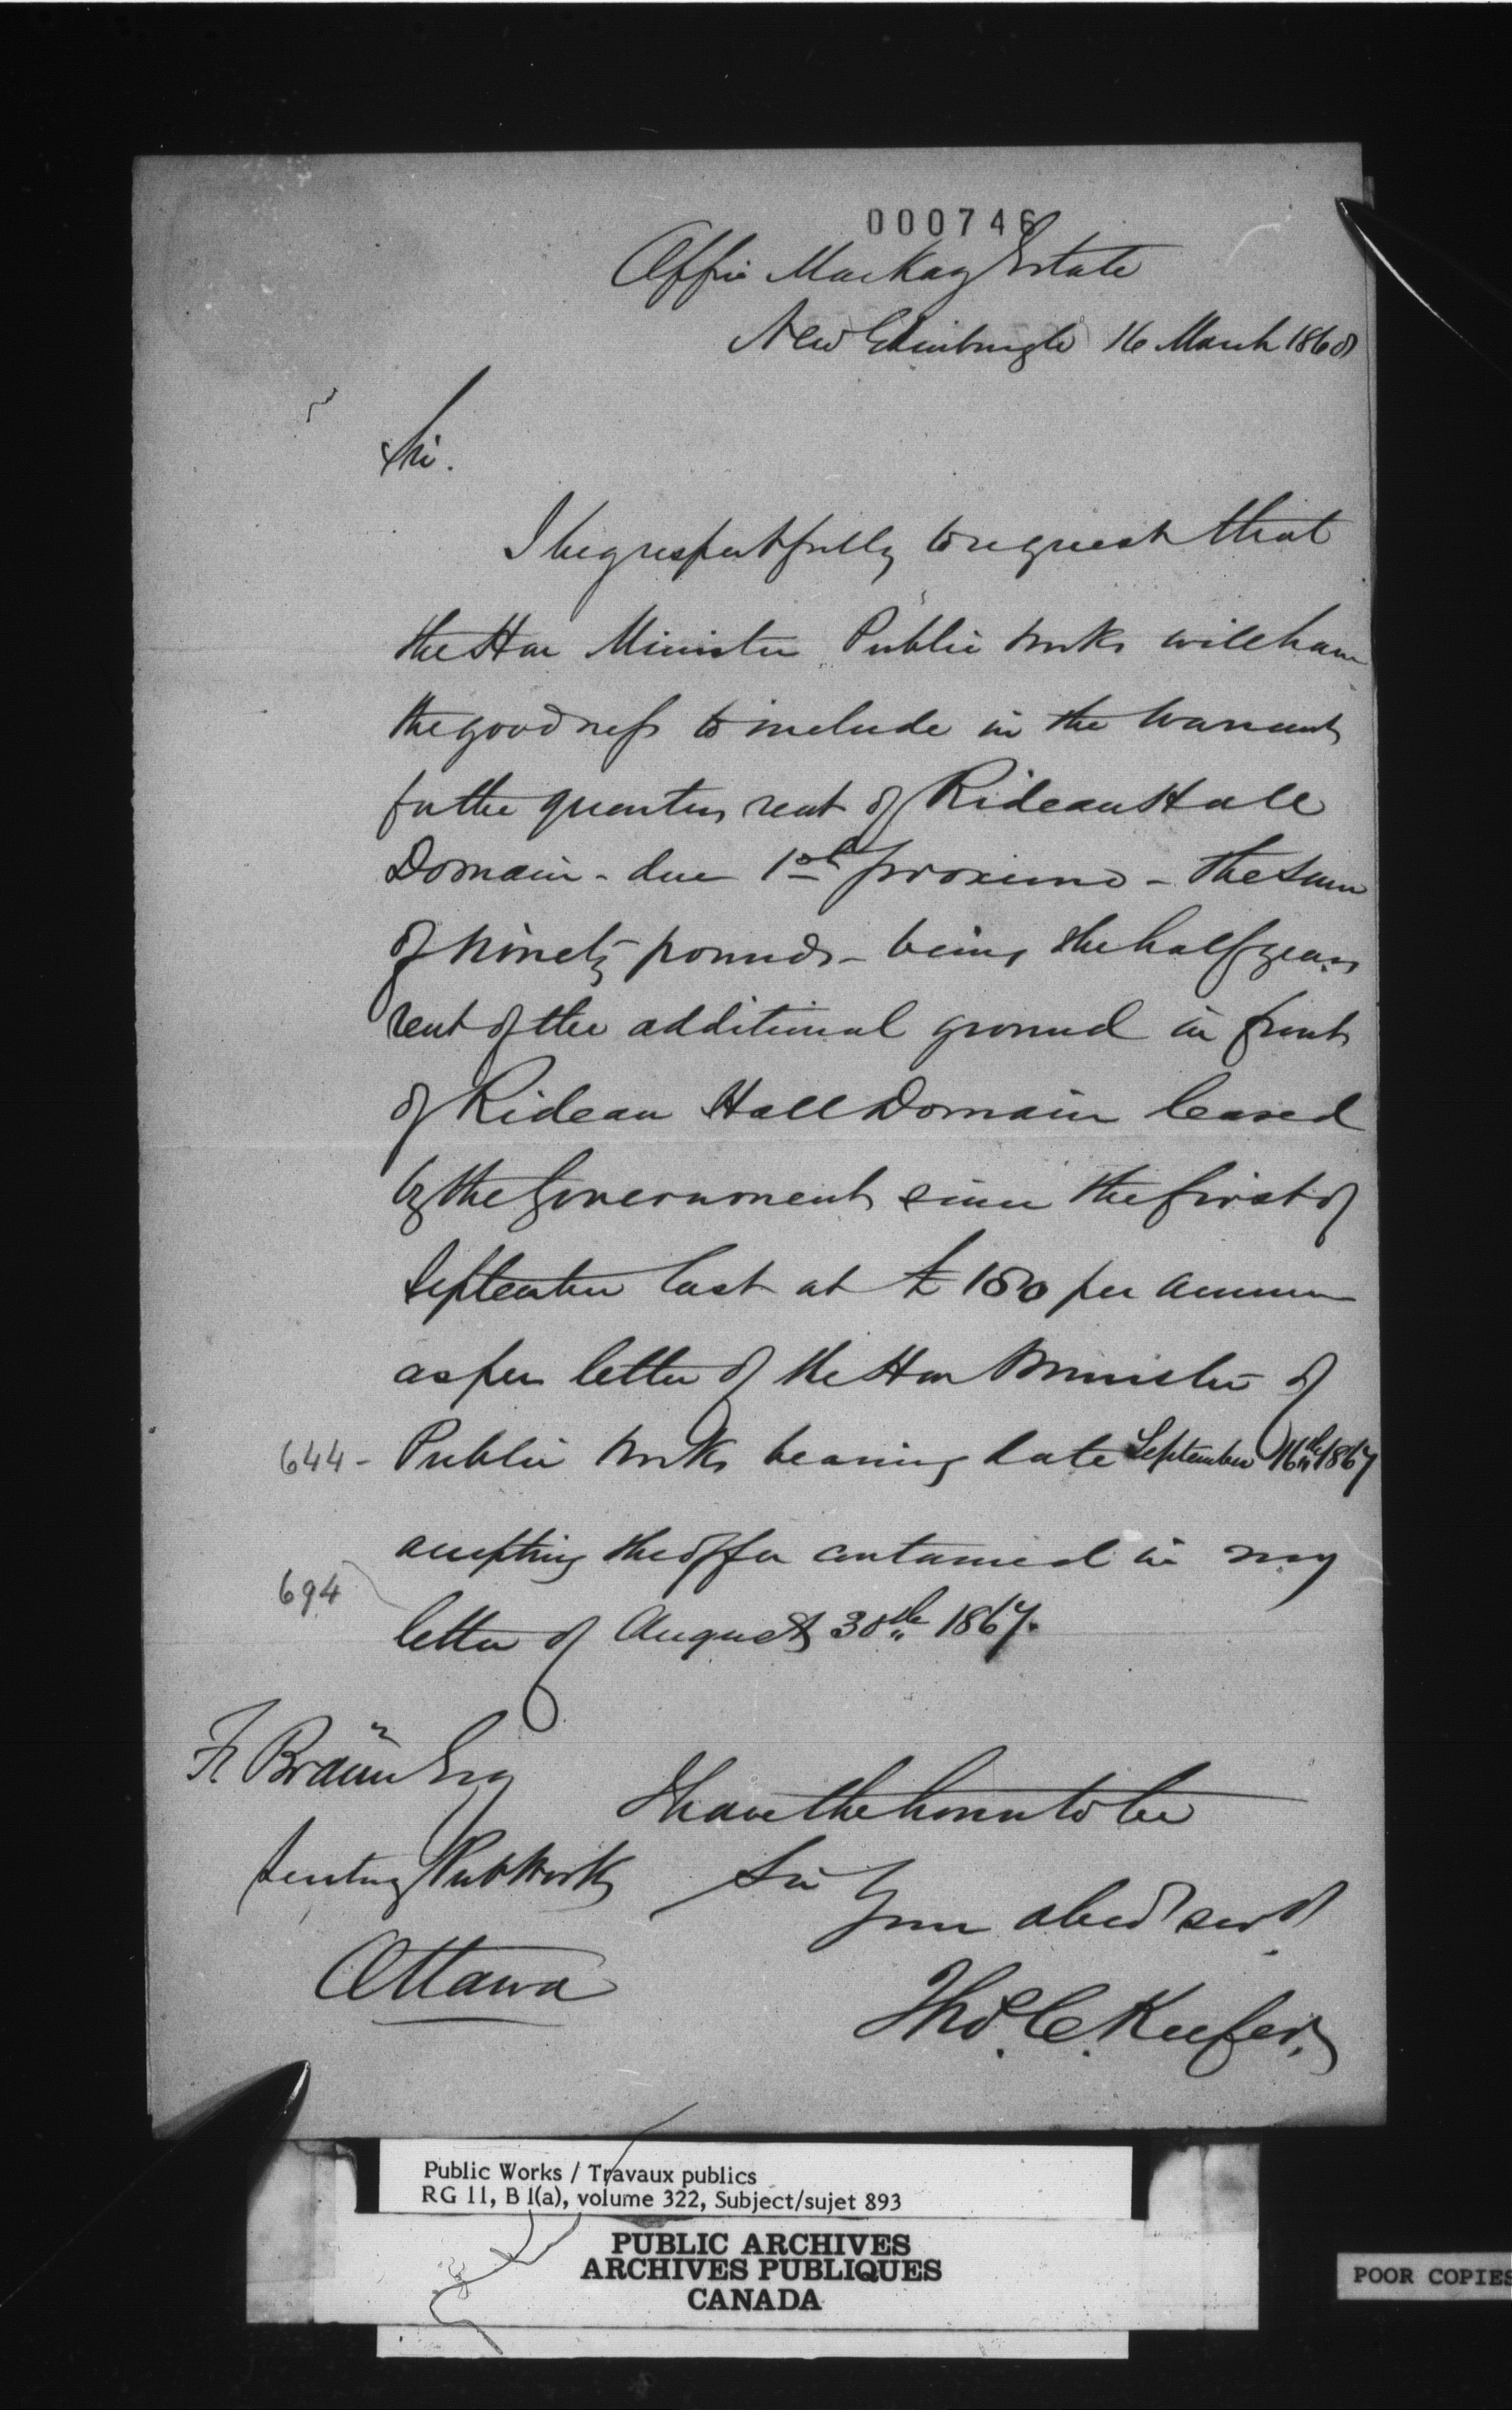 000746
Office MacKay Estate
New Edinburgh 16 March 1868
Sir.
I beg respectfully to request that
the Hon Minister Public Works will have
the goodness to include in the Warrant
for the quarters rent of Rideau Hall
Domain - due 1st proximo - the sum
of ninety pounds - being the half years
rent of the additional ground in front
of Rideau Hall Domain leased
by the Government since the first of
September last at £180 per annum
as per letter of the Hon Minister of
644 - Public Works bearing date September 16th 1867
accepting the offer contained in my
694
letter of August 30th 1867.
F Braun Esq
I have the honor to be
Secretary Pub Works
Sir
Your obed servt
Ottawa
Thos. C. Keefer,
Public Works / Travaux publics
RG 11, B 1(a), volume 322, Subject/sujet 893
PUBLIC ARCHIVES
ARCHIVES PUBLIQUES
CANADA
POOR COPIES